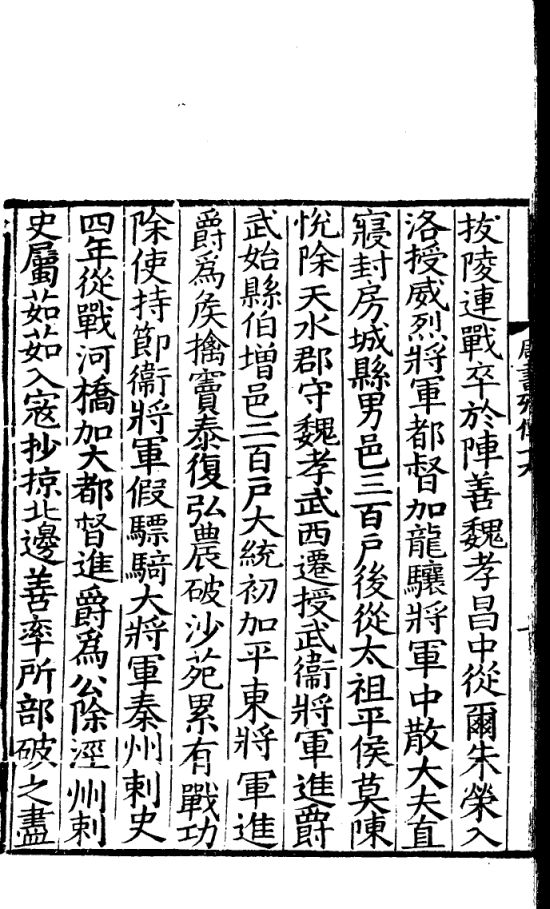 拔陵連戰卒於陣善魏孝昌中從爾朱榮入
洛授威烈將軍都督加龍驤將軍中散大夫直
寢封房城縣男邑三百戶後從太祖平侯莫陳
悅除天水郡守魏孝武西遷授武衞將軍進爵
武始縣伯增邑二百戶大統初加平東將軍進
爵爲矦擒竇泰復弘農破沙苑累有戰功
除使持節衞將軍假驃騎大將軍秦州刺史
四年從戰河橋加大都督進爵爲公除涇州刺
史屬茹茹入寇抄掠北邊善率所部破之盡